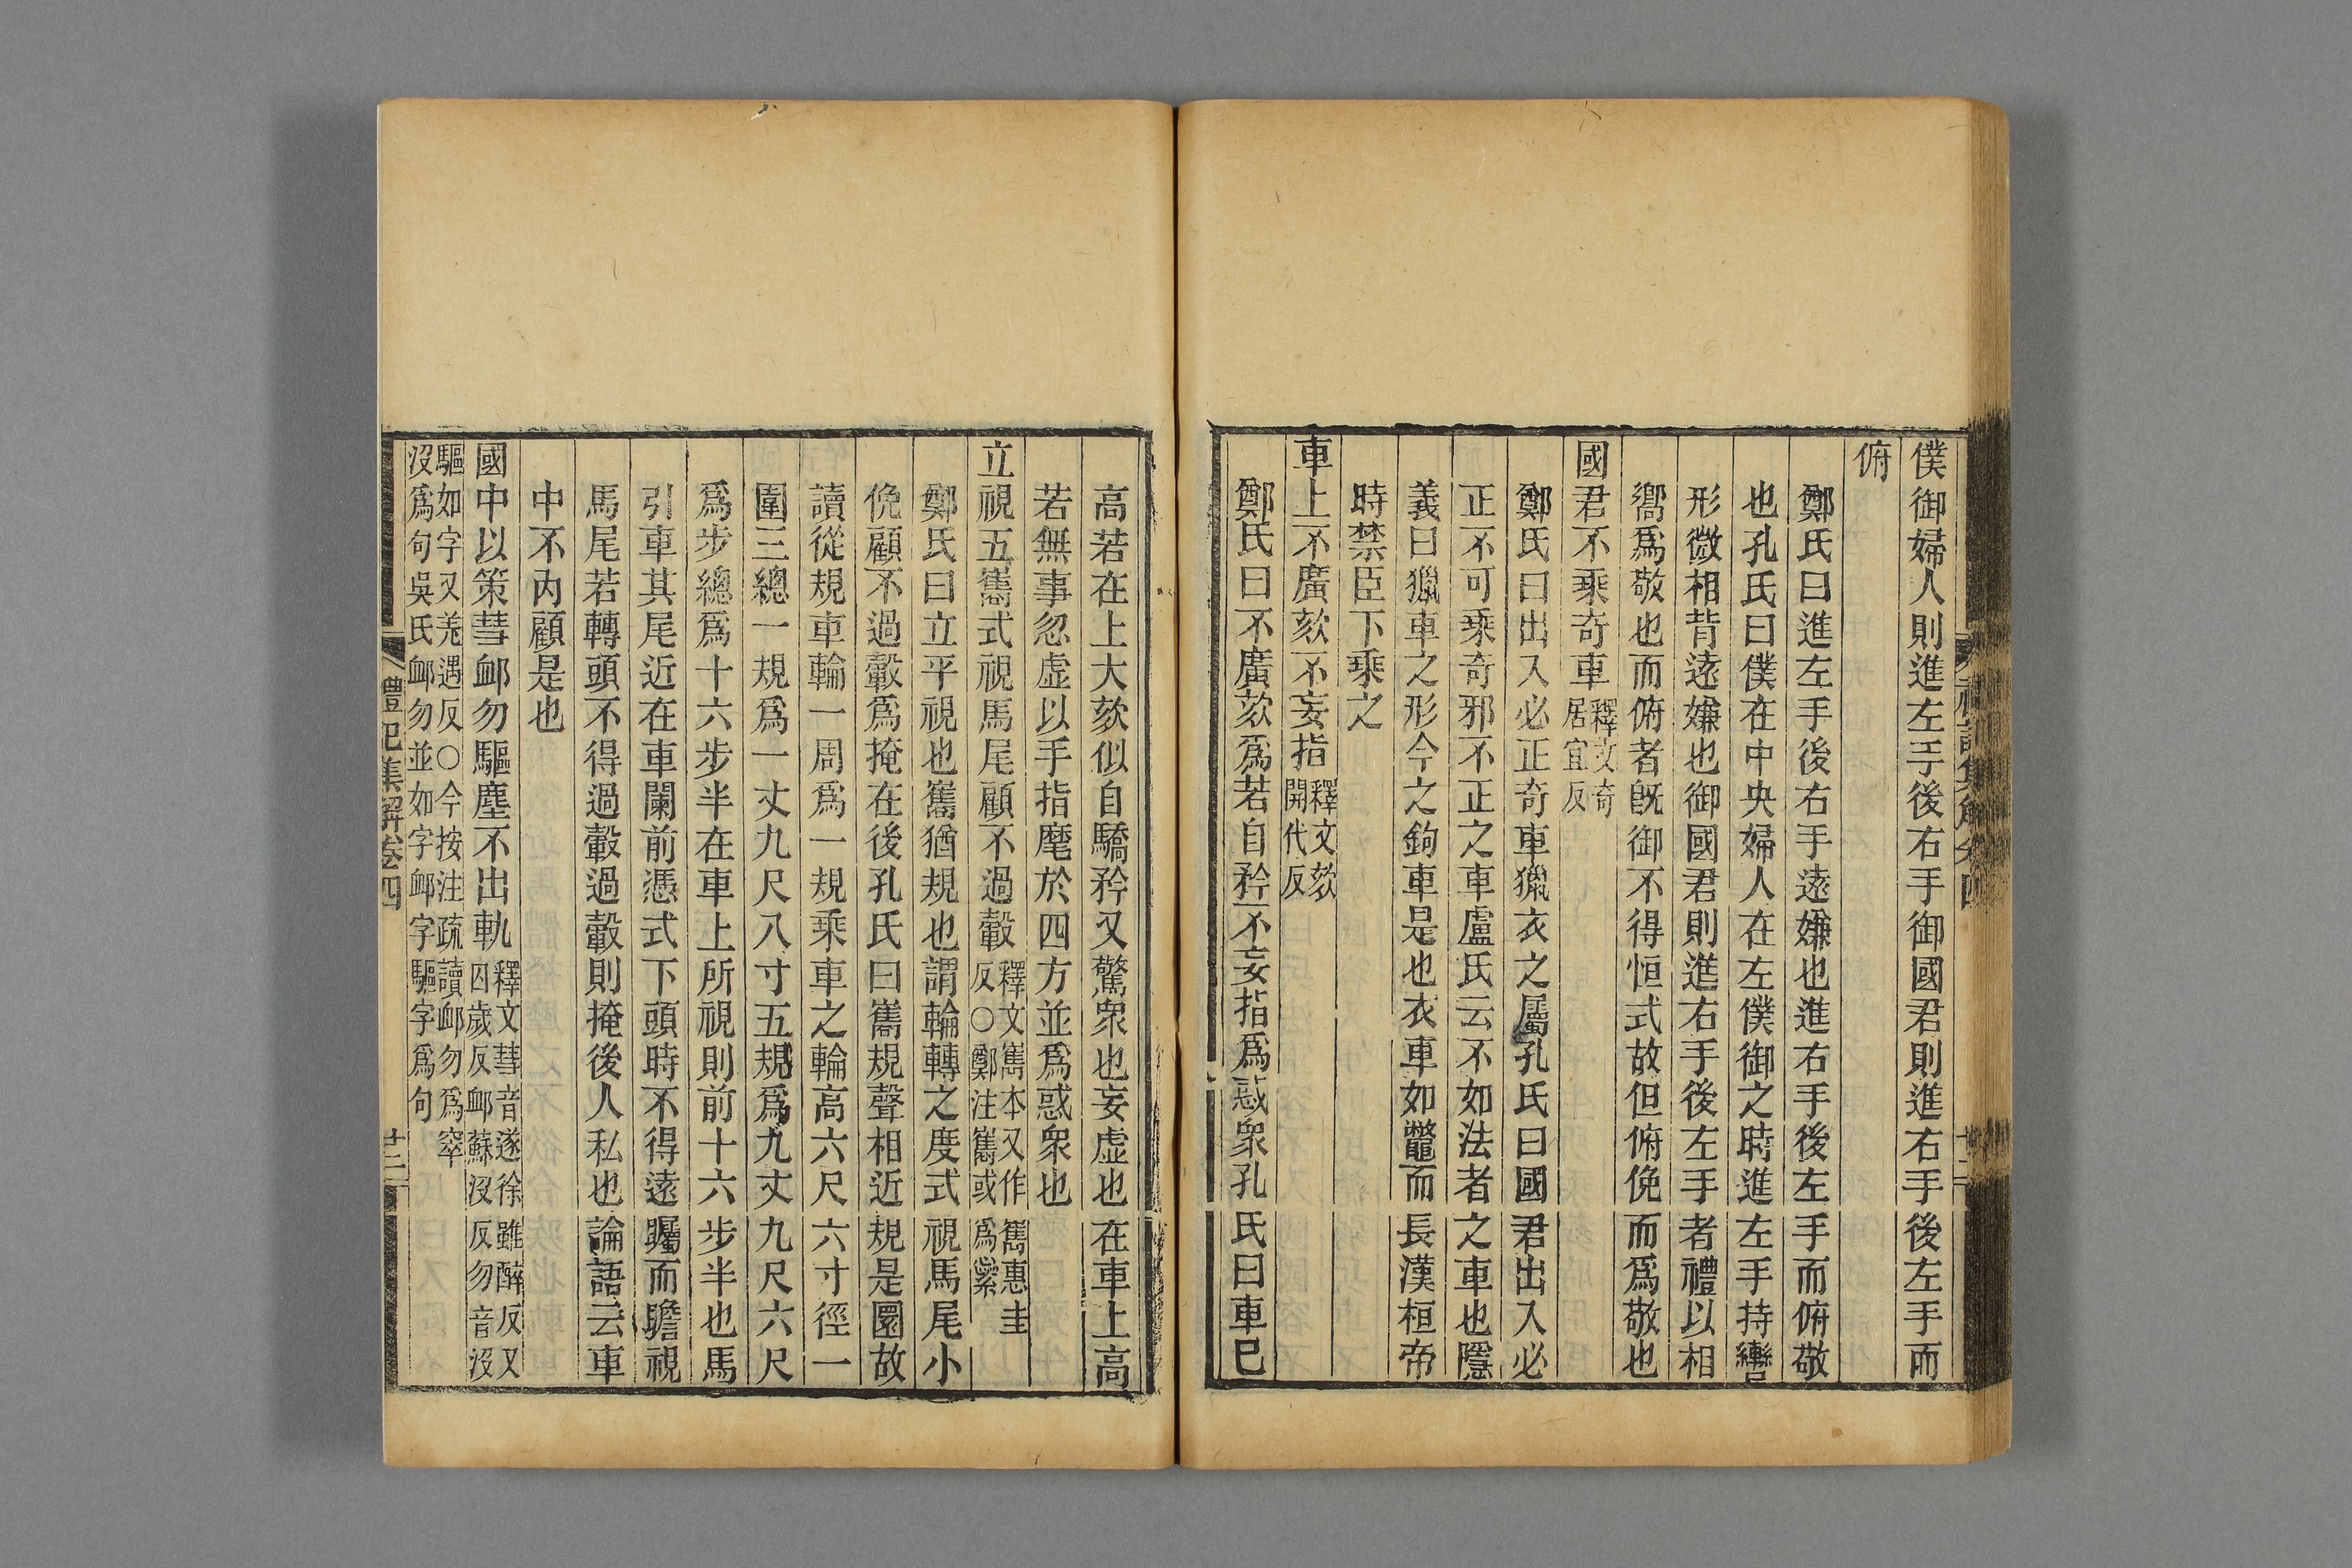 僕御婦人則進左手後右手御國君則進右手後左手而
俯
鄭氏曰進左手後右手遠嫌也進右手後左手而俯敬
也孔氏曰僕在中央婦人在左僕御之時進左手持轡
形微相背遠嫌也御國君則進右手後左手者禮以相
嚮爲敬也而俯者旣御不得恒式故但俯俛而爲敬也
國君不乘奇車釋文奇居宜反
鄭氏曰出入必正奇車獵衣之屬孔氏曰國君出入必
正不可乘奇邪不正之車盧氏云不如法者之車也隱
義曰獵車之形今之鉤車是也衣車如鼈而長漢桓帝
時禁臣下乘之
車上不廣欬不妄指釋文欬開代反
鄭氏曰不廣欬爲若自矜不妄指爲惑衆孔氏曰車已
高若在上大欬似自驕矜又驚衆也妄虚也在車上高
若無事忽虚以手指麾於四方並爲惑衆也
立視五巂式視馬尾顧不過轂釋文巂本又作雟惠圭反○鄭注巂或爲繠
鄭氏曰立平視也巂猶規也謂輪轉之度式視馬尾小
俛顧不過轂爲掩在後孔氏曰巂規聲相近規是圜故
讀從規車輪一周爲一規乘車之輪高六尺六寸徑一
圍三總一規爲一丈九尺八寸五規爲九丈九尺六尺
爲步總爲十六步半在車上所視則前十六步半也馬
引車其尾近在車闌前憑式下頭時不得遠矚而瞻視
馬尾若轉頭不得過轂過轂則掩後人私也論語云車
中不內顧是也
國中以策彗卹勿驅塵不出軌釋文彗音遂徐雖醉反又囚歲反卹蘇沒反勿音沒
驅如字又羌遇反○今按注疏讀卹勿爲窣
沒爲句吳氏卹勿並如字卹字驅字爲句
禮記集解卷四
十二